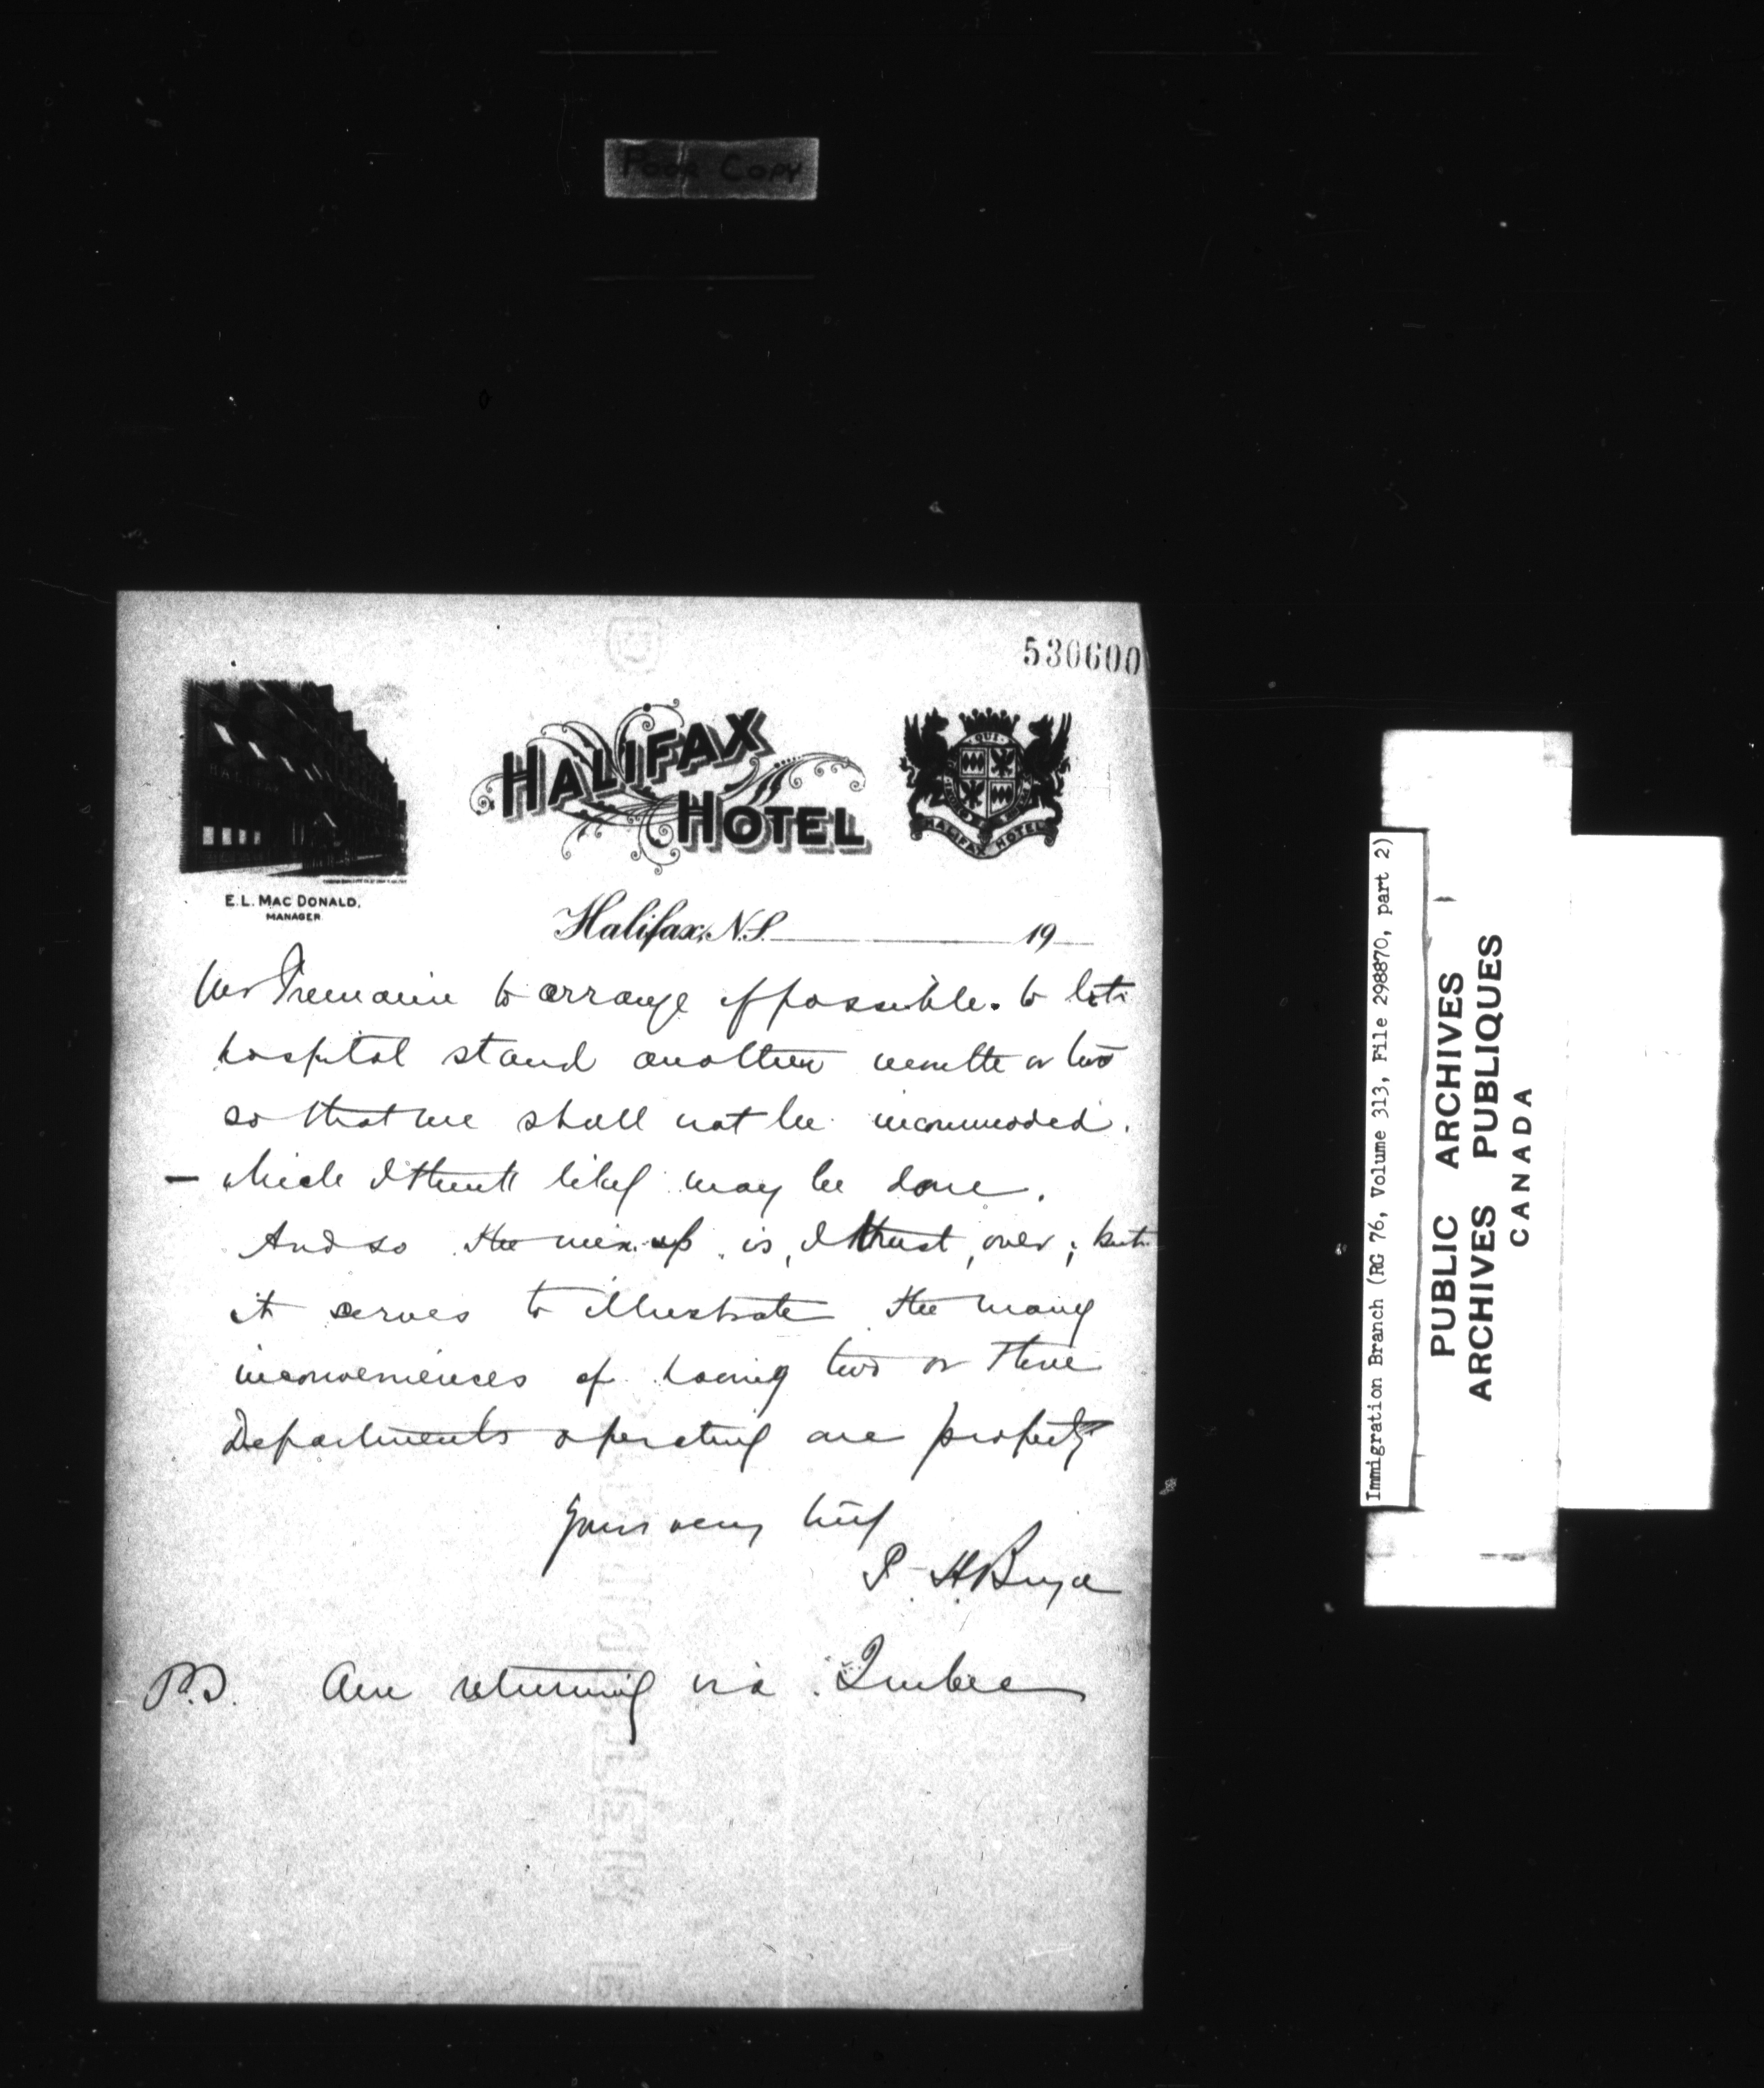 Poor Copy
530600
HALIFAX
HOTEL
QUI
HALIFAX HOTEL
E. L. MAC DONALD,
MANAGER
Halifax, N.S. 19
Mr Tremaine to arrange if possible. to let
hospital stand another month or two
so that we shall not be incommoded.
— which I think likely may be done.
And so the mix up is, I trust, over; but
it serves to illustrate the many
inconveniences of having two or three
Departments operating one property
Yours very truly
P. H. Bryce
P.S. Am returning via Quebec
Immigration Branch (RG 76, Volume 313, File 298870, part 2)
PUBLIC ARCHIVES
ARCHIVES PUBLIQUES
CANADA